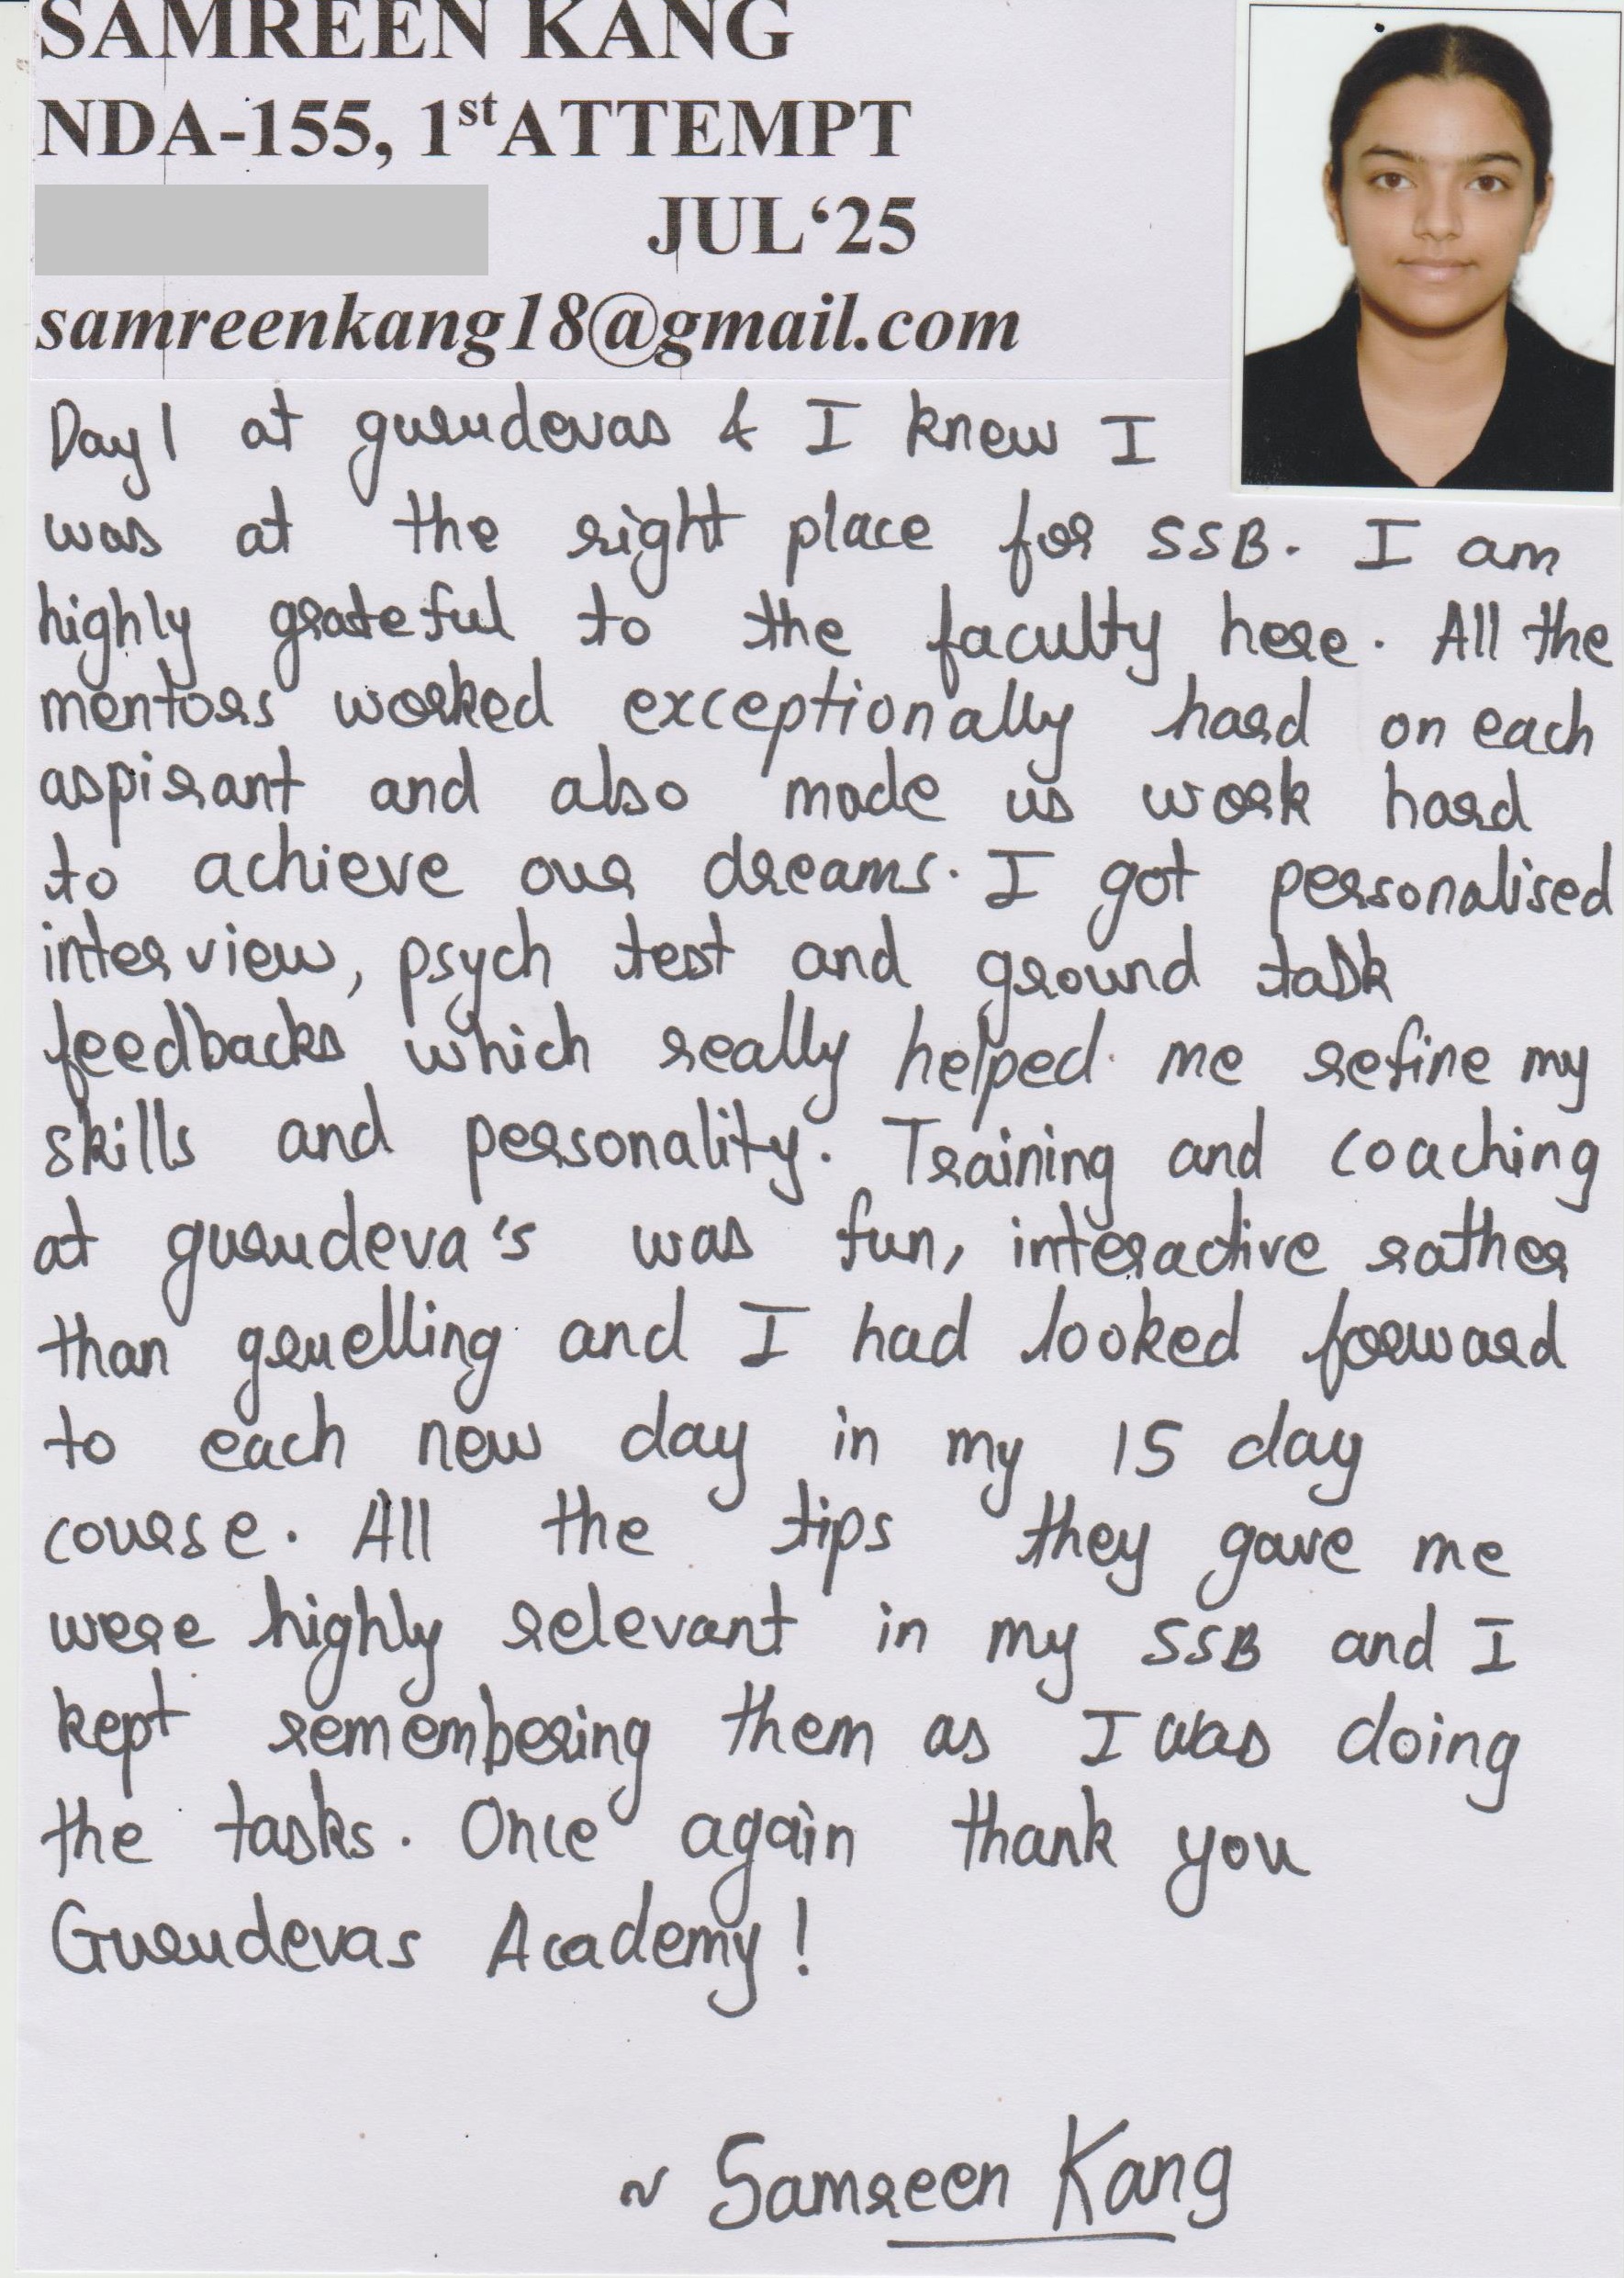 SAMREEN KANG
NDA-155, 1st ATTEMPT
JUL‘25
samreenkang18@gmail.com
Day 1 at gurudevas & I knew I
was at the right place for SSB. I am
highly grateful to the faculty here. All the
mentors worked exceptionally hard on each
aspirant and also made us work hard
to achieve our dreams. I got personalised
interview, psych test and ground task
feedbacks which really helped me refine my
skills and personality. Training and coaching
at gurudeva's was fun, interactive rather
than gruelling and I had looked forward
to each new day in my 15 day
course. All the tips they gave me
were highly relevant in my SSB and I
kept remembering them as I was doing
the tasks. Once again thank you
Gurudevas Academy!
~ Samreen Kang